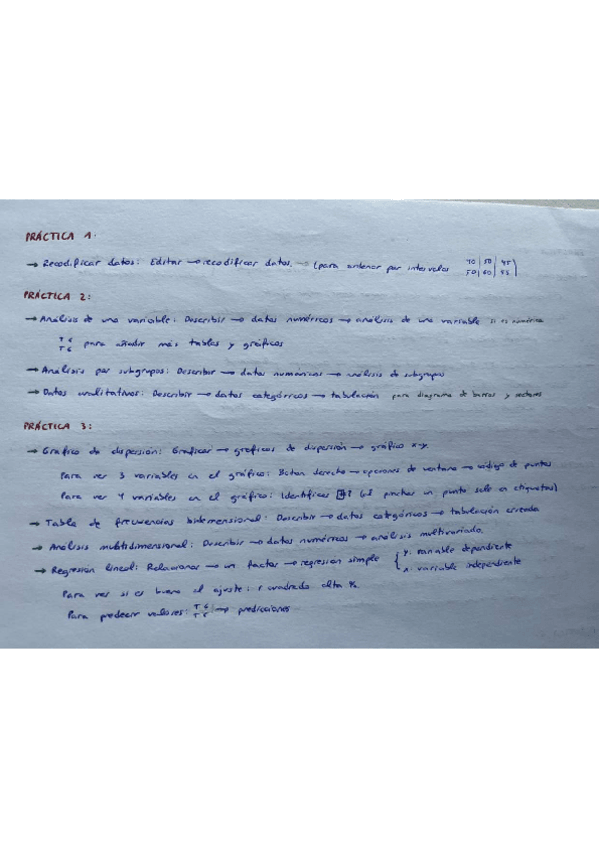 PRÁCTICA 1:
→ Recodificar datos: Editar → recodificar datos. → (para ordenar por intervalos
PRÁCTICA 2:
→ Análisis de una variable: Describir → datos numéricos → análisis de una variable si es numérica
T G
T G para añadir más tablas y gráficos
→ Análisis por subgrupos: Describir → datos numéricos → análisis de subgrupos
→ Datos cualitativos: Describir → datos categóricos → tabulación para diagrama de barras y sectores
PRÁCTICA 3:
→ Gráfico de dispersión: Graficar → gráficos de dispersión → gráfico x-y.
Para ver 3 variables en el gráfico: Botón derecho → opciones de ventana → código de puntos
Para ver 4 variables en el gráfico: Identificar (al pinchar un punto sale en etiquetas)
→ Tabla de frecuencias bidimensional: Describir → datos categóricos → tabulación cruzada
→ Análisis multidimensional: Describir → datos numéricos → análisis multivariado.
→ Regresión lineal: Relacionar → un factor → regresión simple { y: variable dependiente
x: variable independiente
Para ver si es bueno el ajuste: r cuadrado alta %
Para predecir valores: → predicciones